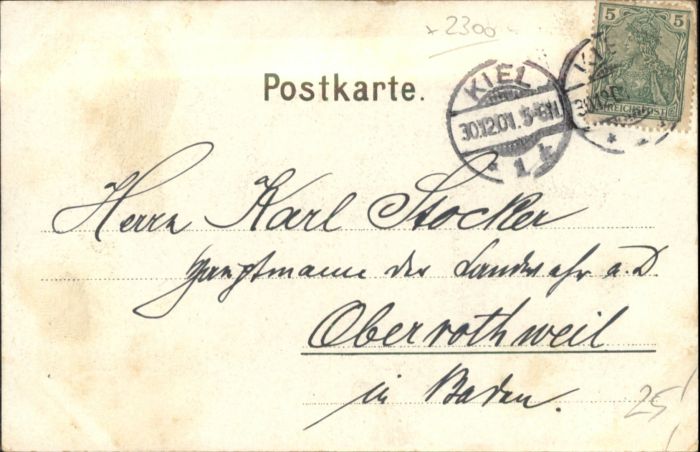 × 2300
5 5
REICHSPOST
Postkarte.
KIEL
30.12.01. 5-6N
* 1. k
Herrn Karl Stocker
Hauptmann der Landwehr a. D.
Oberrothweil
in Baden.
25